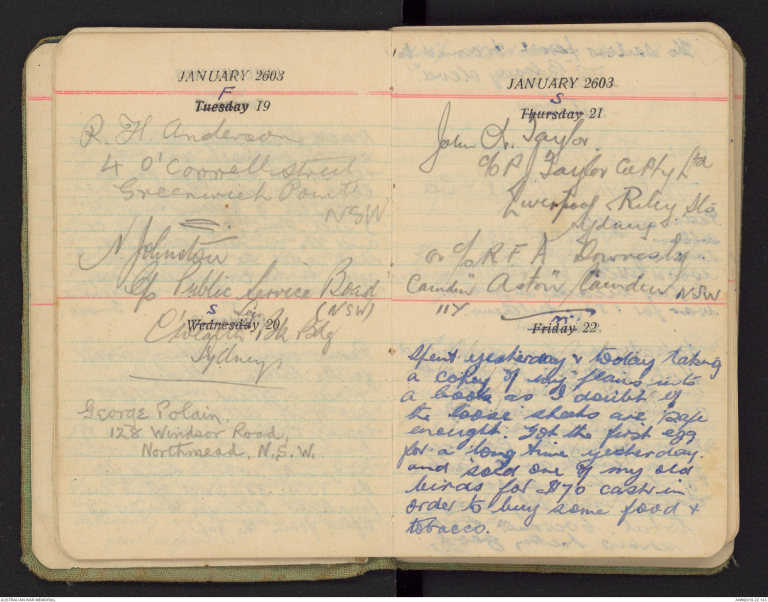 JANUARY 2603
F
Tuesday 19
R. H. Anderson
4 O'Connell Street
Greenwich Point
NSW
N Johnston
c/o Public Service Board
(NSW)
S
Wednesday 20
Bk Bdg
Sydney
George Polain.
128 Windsor Road,
Northmead, N.S.W.
JANUARY 2603
S
Thursday 21
John Taylor.
c/o P J Taylor Co Pty Ltd
Liverpool Riley Sts
Sydney
or c/o R. F. A
Camden Camden NSW
114
M.
Friday 22
Spent yesterday & today taking
a copy of my plans into
a book as I doubt if
the loose sheets are safe
enought. Got the first egg
for a long time yesterday
and sold one of my old
birds for $70 cash in
order to buy some food &
tobacco.
AUSTRALIAN WAR MEMORIAL